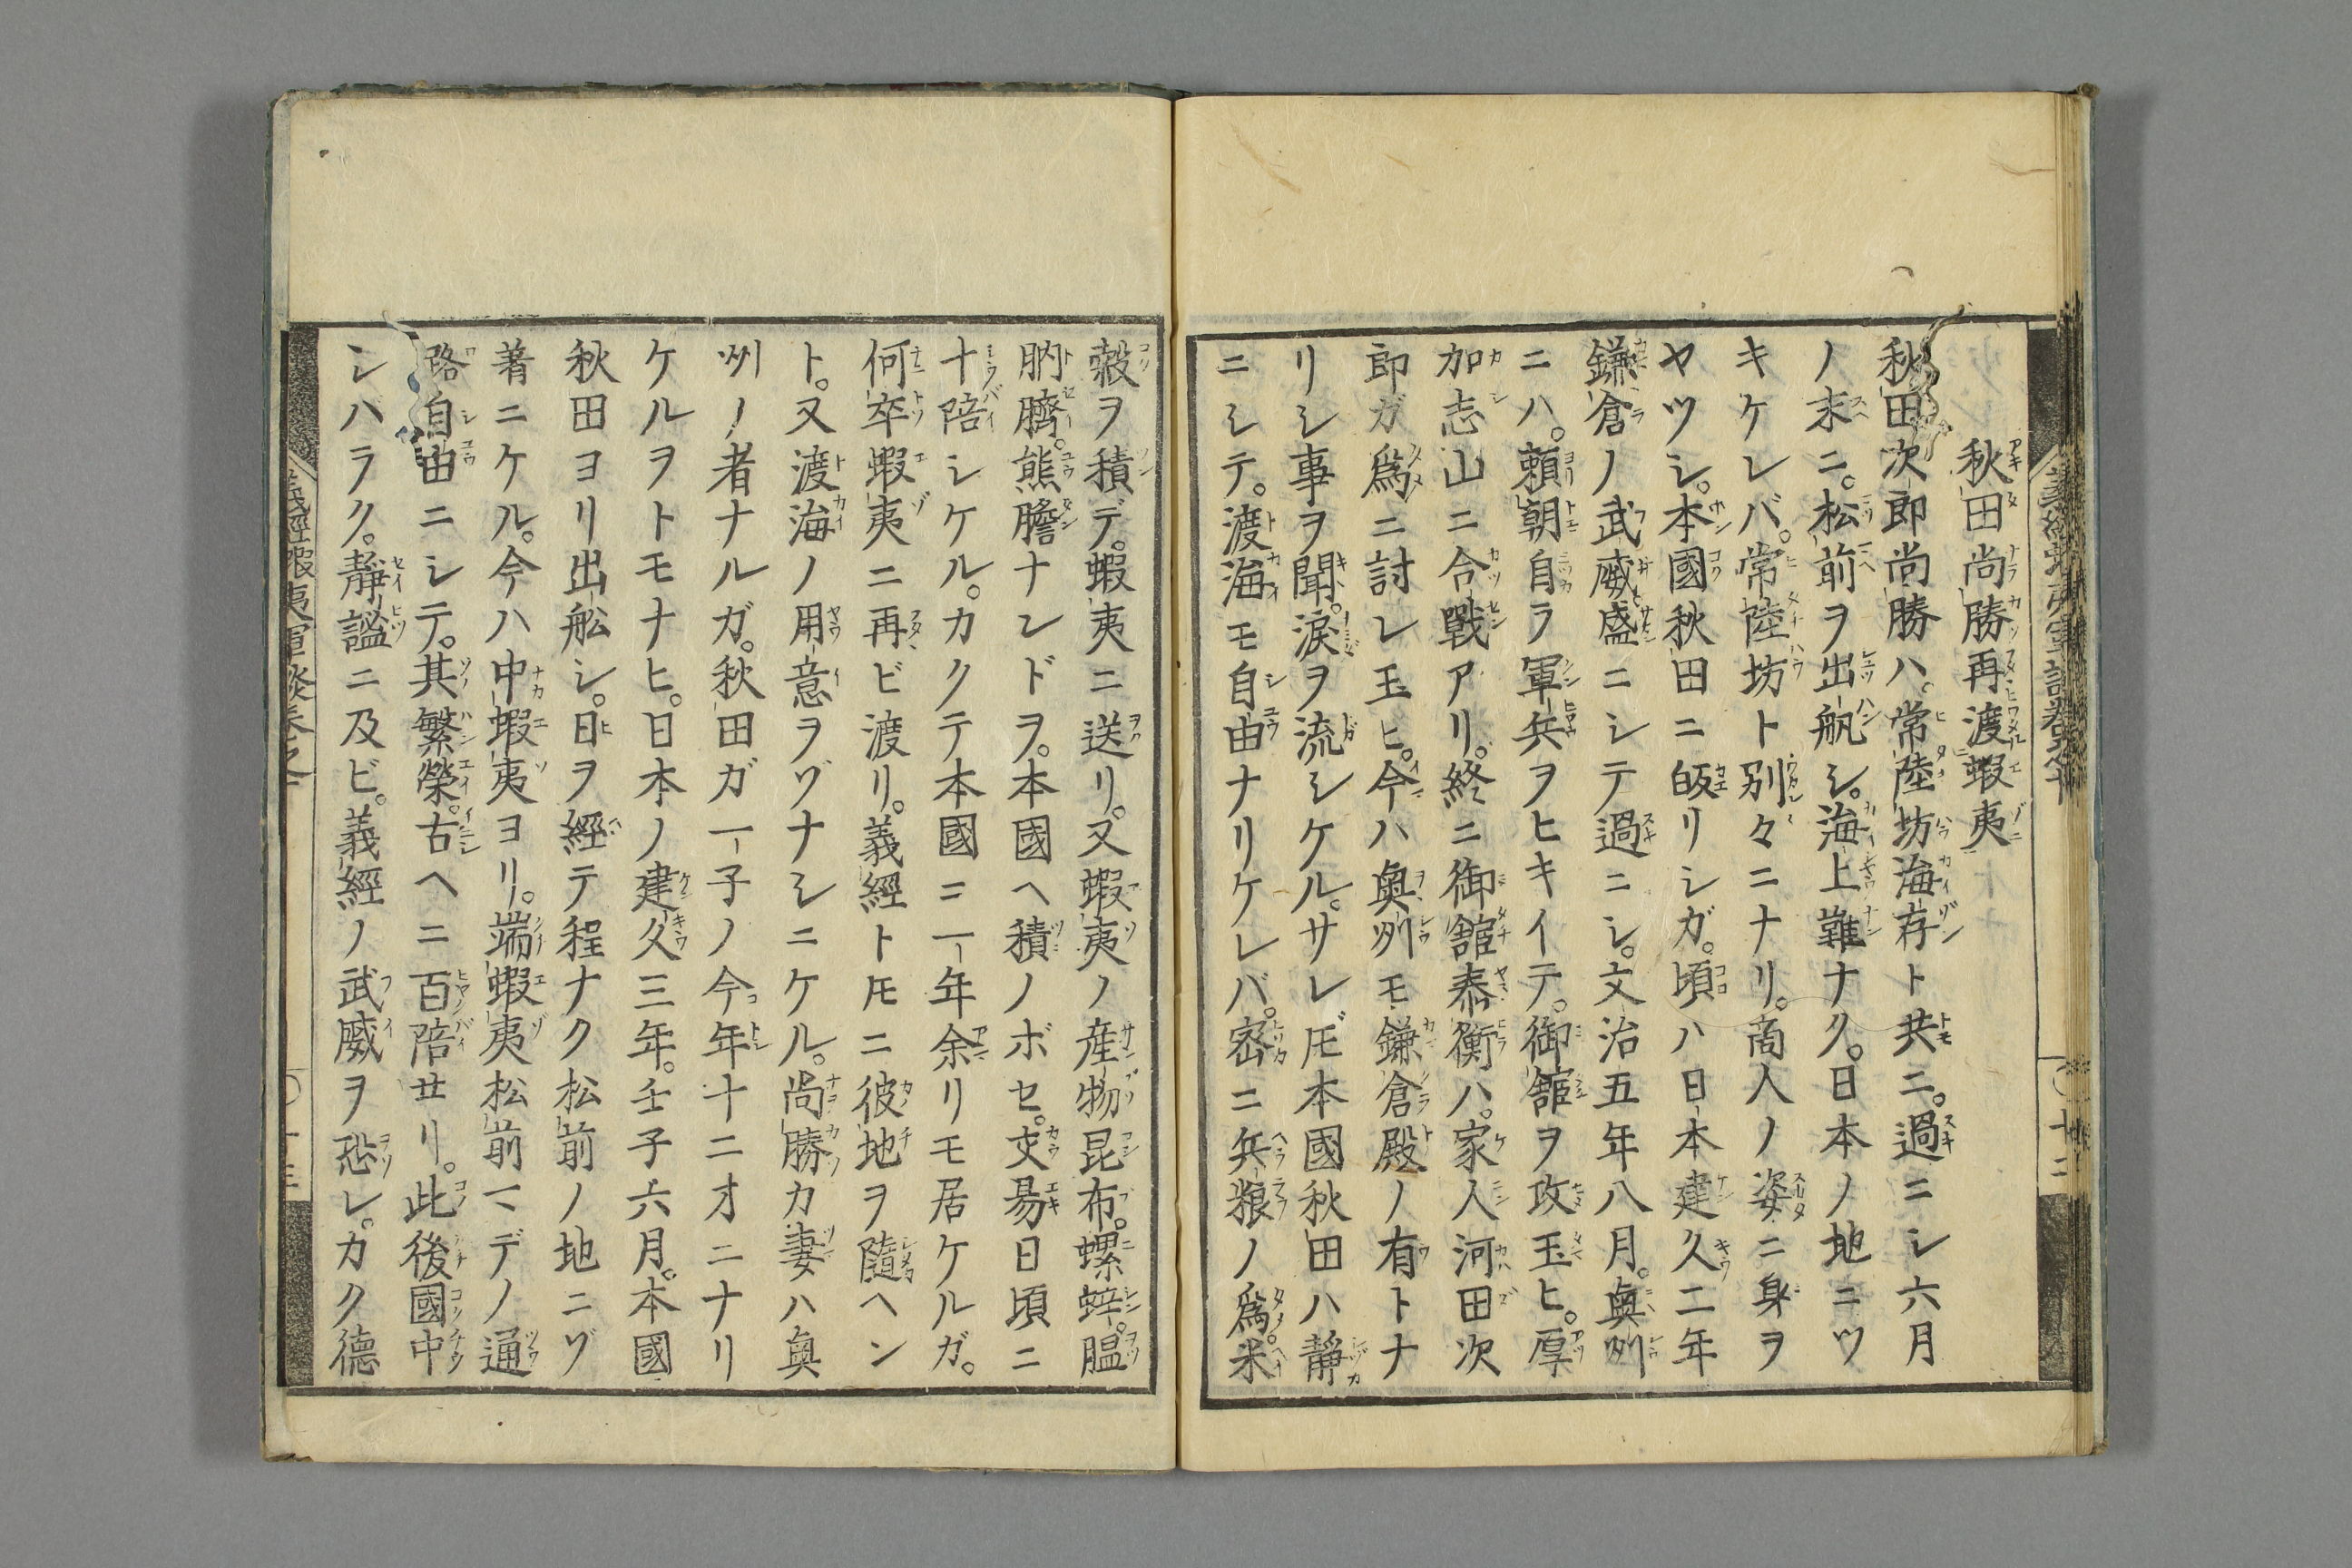 秋田尚勝再渡蝦夷
秋田次郎尚勝ハ。常陸坊海存ト共ニ。過ニシ六月
ノ末ニ。松前ヲ出帆シ。海上難ナク。日本ノ地ニツ
キケレバ。常陸坊ト別々ニナリ。商人ノ姿ニ身ヲ
ヤツシ。本國秋田ニ皈リシガ。頃ハ日本建久二年
鎌倉ノ武威盛ニシテ過ニシ。文治五年八月。奥州
ニハ。頼朝自ラ軍兵ヲヒキイテ。御舘ヲ攻玉ヒ。厚
加志山ニ合戰アリ。終ニ御舘泰衡ハ。家人河田次
郎ガ爲ニ討レ玉ヒ。今ハ奥州モ鎌倉殿ノ有トナ
リシ事ヲ聞。涙ヲ流シケル。サレ𪜈本國秋田ハ靜
ニシテ。渡海モ自由ナリケレバ。密ニ兵粮ノ爲。米
穀ヲ積デ。蝦夷ニ送リ。又蝦夷ノ産物昆布。螺蜯。膃
肭臍。熊膽ナンドヲ。本國ヘ積ノボセ。交易日頃ニ
十陪シケル。カクテ本國ニ一年余リモ居ケルガ。
何卒蝦夷ニ再ビ渡リ。義經ト𪜈ニ彼地ヲ隨ヘン
ト。又渡海ノ用意ヲゾナシニケル。尚勝カ妻ハ奥
州ノ者ナルガ。秋田ガ一子ノ今年十二才ニナリ
ケルヲトモナヒ。日本ノ建久三年。壬子六月。本國
秋田ヨリ出舩シ。日ヲ經テ程ナク松前ノ地ニゾ
著ニケル。今ハ中蝦夷ヨリ。端蝦夷松前マデノ通
路自由ニシテ。其繁榮。古ヘニ百陪セリ。此後國中
シバラク。靜謐ニ及ビ。義經ノ武威ヲ恐レ。カク德
義經蝦夷軍談巻之十